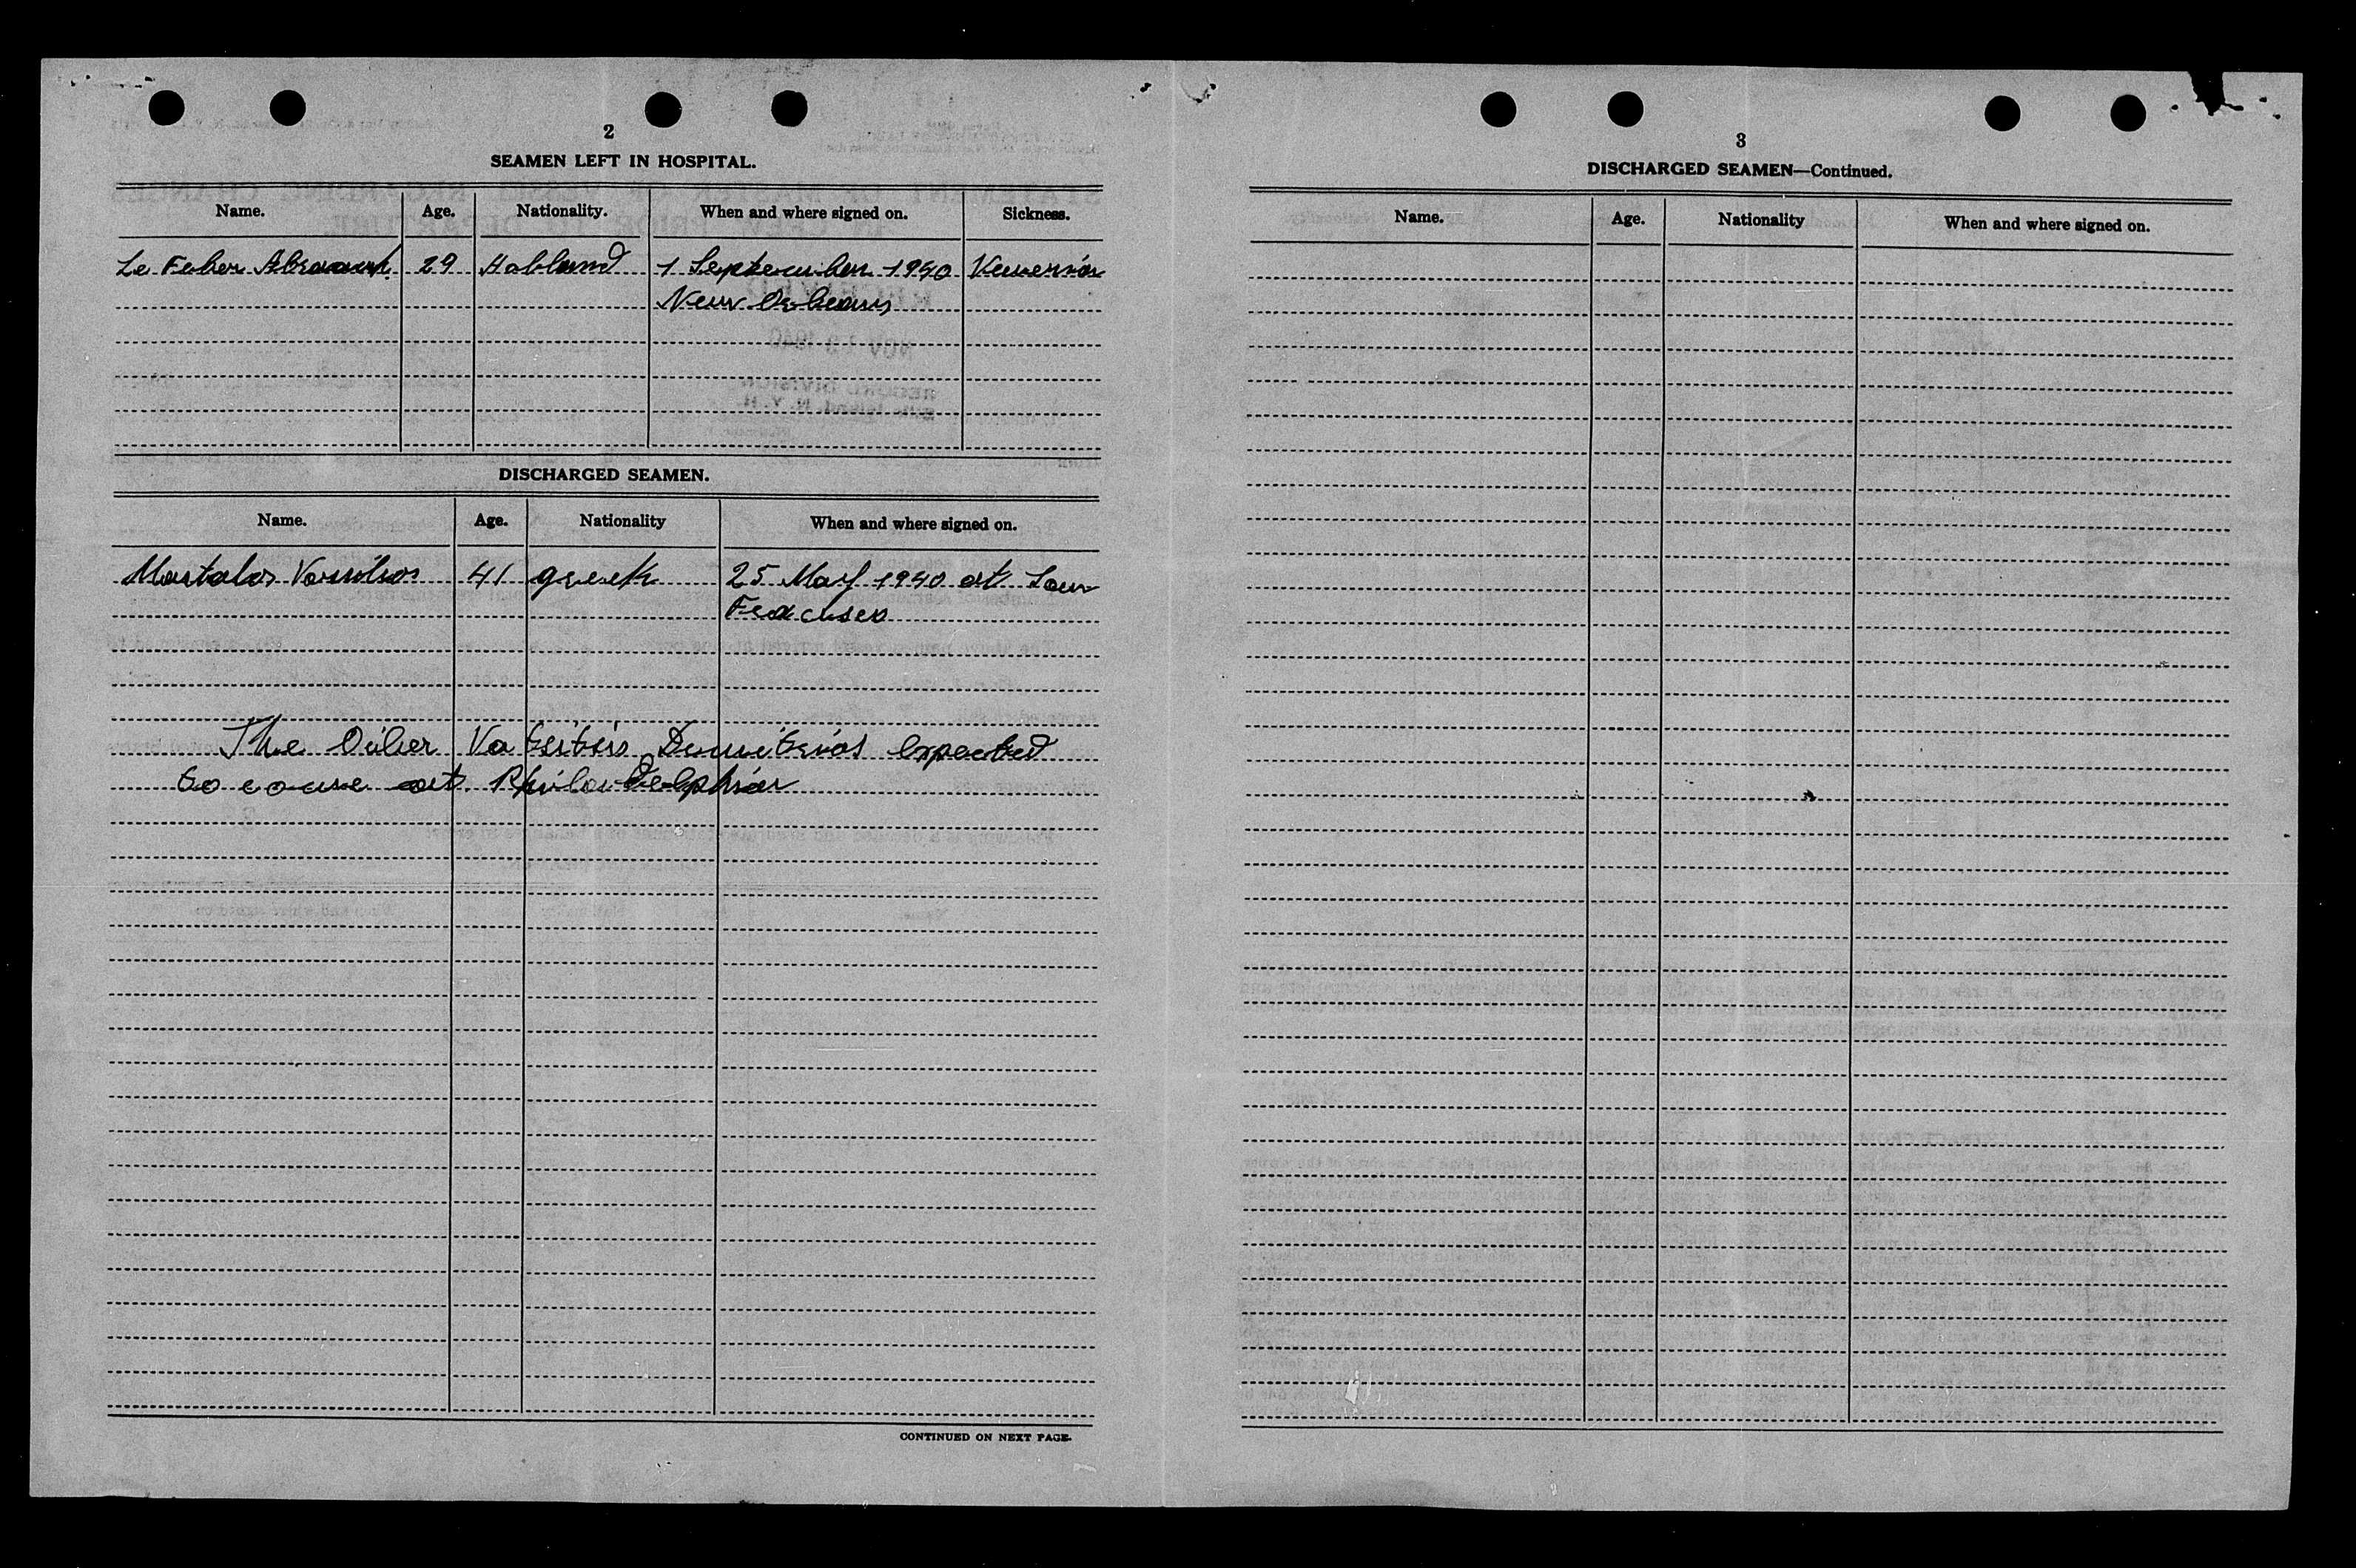 2
SEAMEN LEFT IN HOSPITAL.
Name. Age. Nationality. When and where signed on. Sickness.
Le Feber Abraam 29 Holland 1 September 1940
New Orleans
DISCHARGED SEAMEN.
Name. Age. Nationality When and where signed on.
Mastalos Vasilios 41 greek 25 May 1940 at San
The Oiler Vatsitsis Dimitrios expected
to come at Philadelphia
CONTINUED ON NEXT PAGE.
3
DISCHARGED SEAMEN—Continued.
Name. Age. Nationality When and where signed on.